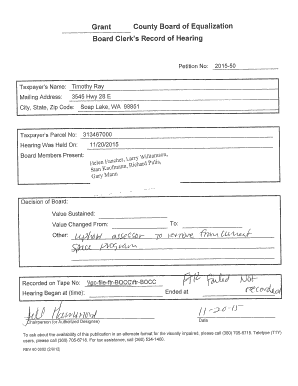 Grant County Board of Equalization
Board Clerk's Record of Hearing
Petition No: 2015-50
Taxpayer's Name: Timothy Ray
Mailing Address: 3545 Hwy 28 E
City, State, Zip Code: Soap Lake, WA 98851
Taxpayer's Parcel No: 313467000
Hearing Was Held On: 11/20/2015
Board Members Present: Helen Fancher, Larry Williamson,
Stan Kaufmann, Richard
Gary Mann
Decision of Board:
Value Sustained:
Value Changed From: To:
Other: uphold assessor to remove from current
space program
Recorded on Tape No: \\gc-file-ftr-BOCC\ftr-BOCC FTR Failed Not
Hearing Began at (time): Ended at recorded
11-20-15
Chairperson (or Authorized Designee) Date
To ask about the availability of this publication in an alternate format for the visually impaired, please call (360) 705-6718. Teletype (TTY)
users, please call (360) 705-6718. For tax assistance, call (360) 534-1400.